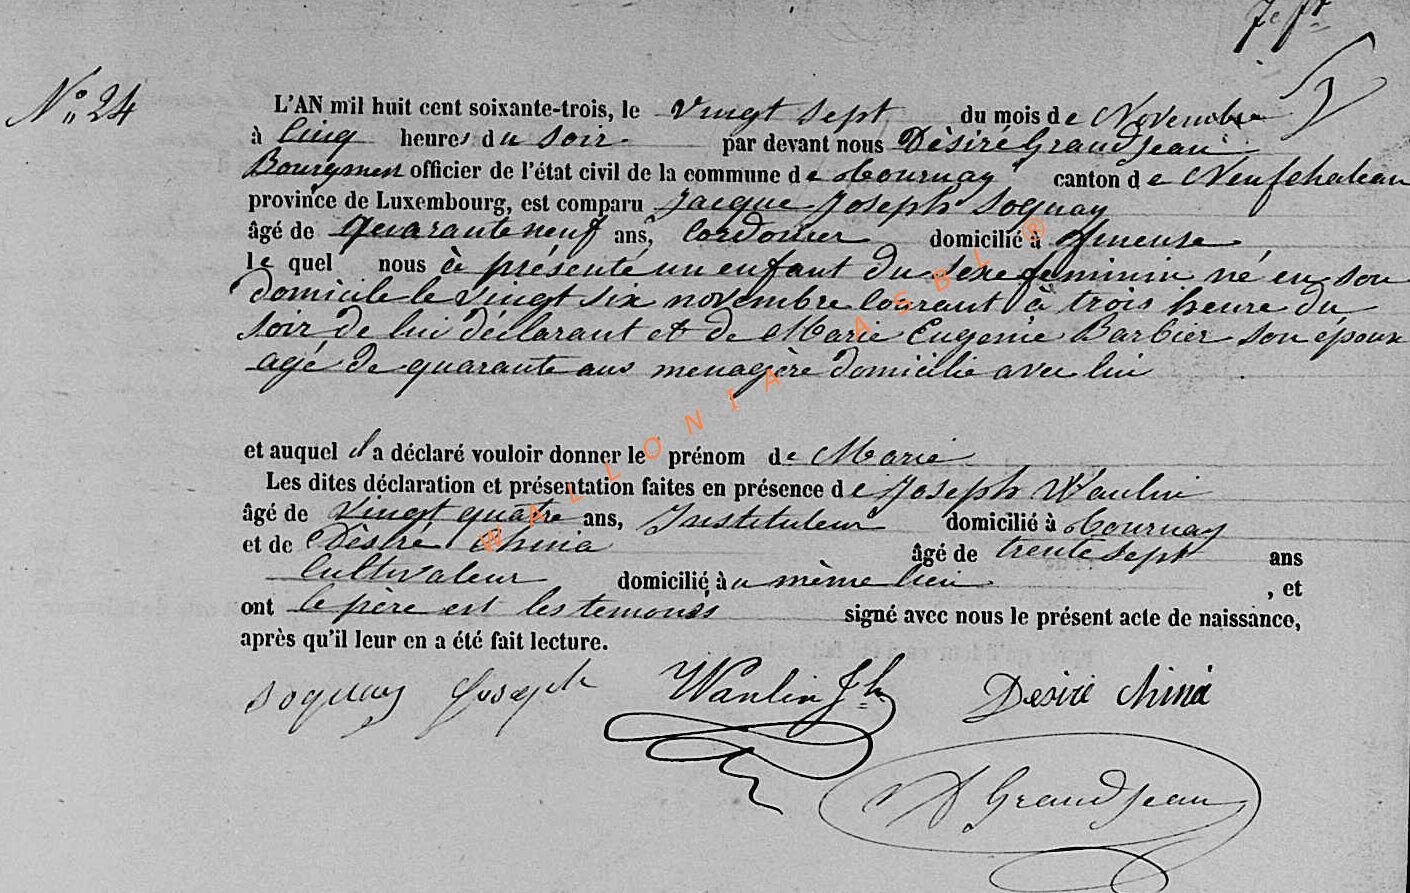 7e ft
No 24
L'AN mil huit cent soixante-trois, le vingt sept du mois de Novembre
à Cinq heures du soir par devant nous Désiré Grandjean
Bourgmen officier de l'état civil de la commune de Tournay canton de Neufchateau
province de Luxembourg, est comparu Jacque Joseph Soquay
âgé de Quarante neuf ans, Cordonier domicilié à
le quel nous à présenté un enfant du sexe feminin né en son
domicile le vingt six novembre Courant à trois heure du
soir de lui déclarant et de Marie Eugenie Barbier son épouse
agé de quarante ans menagère domicilié avec lui
et auquel il a déclaré vouloir donner le prénom de Marie
Les dites déclaration et présentation faites en présence de Joseph Wanlin
âgé de Vingt quatre ans, Instituteur domicilié à Tournay
et de Désiré China âgé de trente sept ans
Cultivateur domicilié à u même lieu , et
ont le père est les temoins signé avec nous le présent acte de naissance,
après qu'il leur en a été fait lecture.
Soquay Joseph Wanlin Jh Desiré China
D Grandjean
WALLONIA ASBL ®